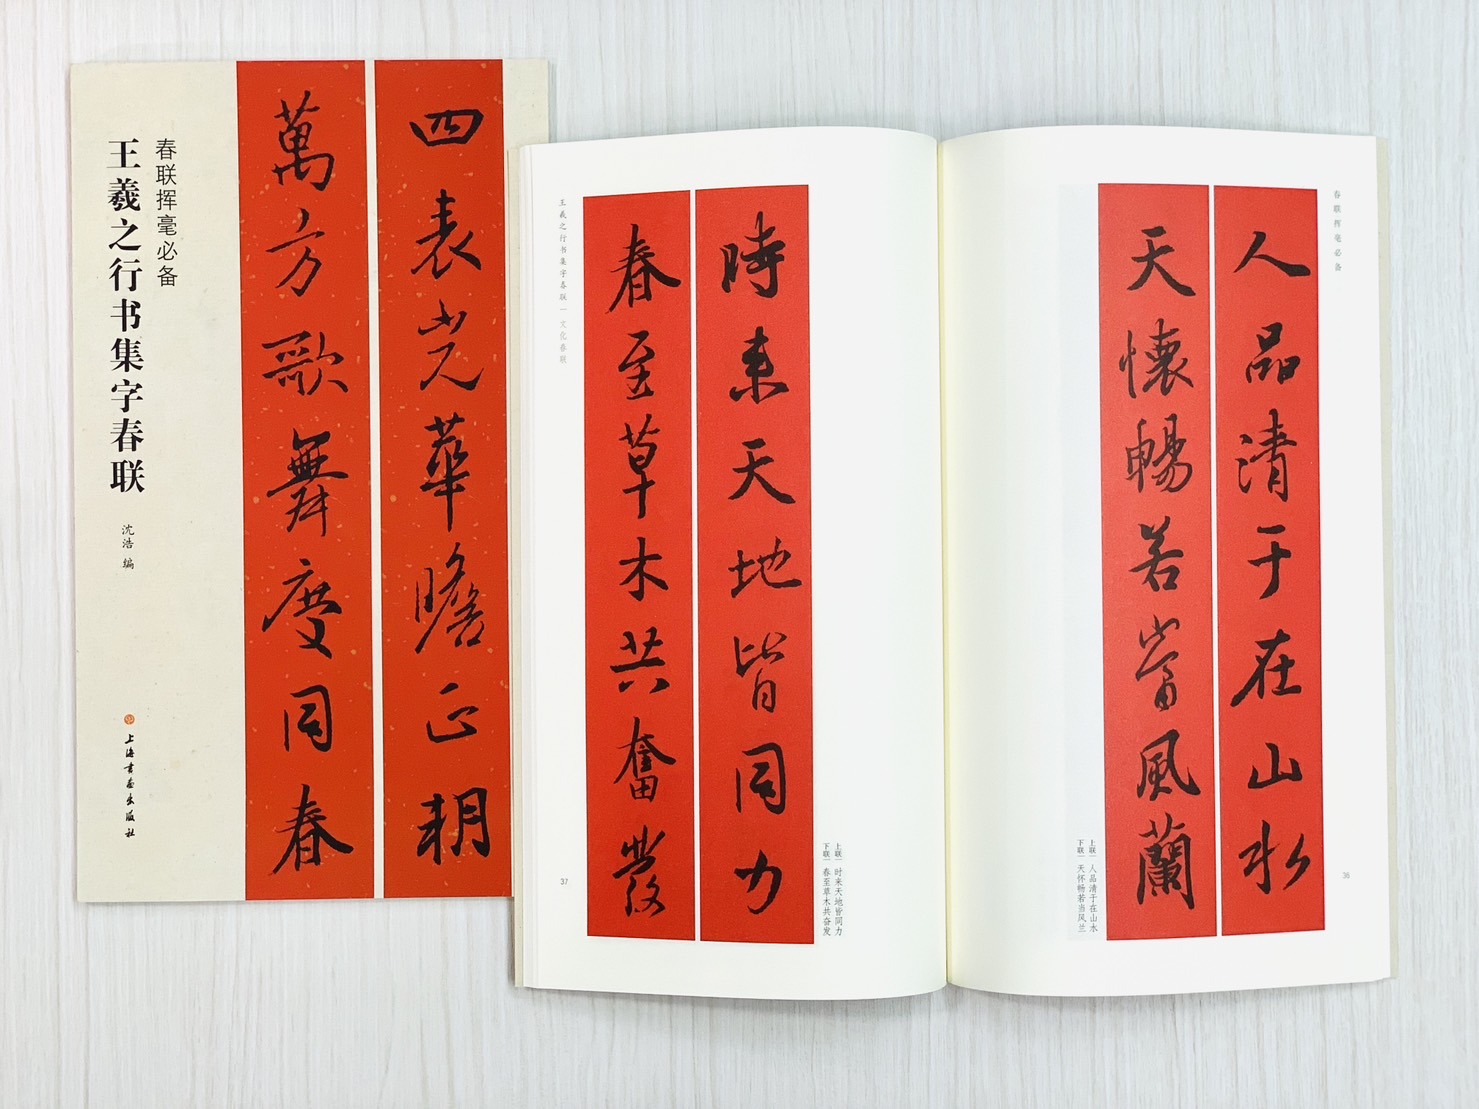 春联挥毫必备
王羲之行书集字春联
沈浩 编
上海书画出版社
四表光華瞻正朝
萬方歌舞慶同春
春联挥毫必备
人品清于在山水
天懷暢若當風蘭
上联｜人品清于在山水
下联｜天怀畅若当风兰
36
時來天地皆同力
春至草木共奮發
上联｜时来天地皆同力
下联｜春至草木共奋发
王羲之行书集字春联｜文化春联
37